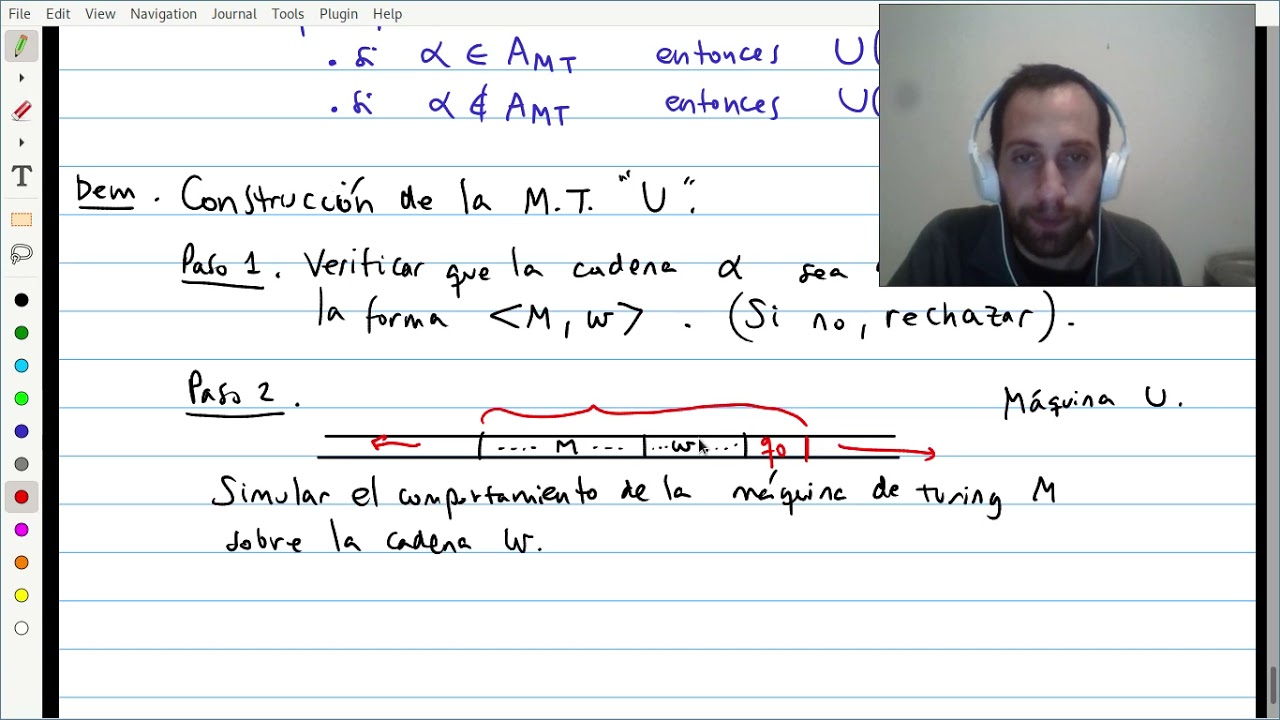 File Edit View Navigation Journal Tools Plugin Help
. si α ∈ A_MT entonces U(
. si α ∉ A_MT entonces U(
Dem. Construcción de la M.T. "U".
Paso 1. Verificar que la cadena α sea
la forma <M, w>. (Si no, rechazar).
Paso 2.
Máquina U.
.... M .... ...w.... q0
Simular el comportamiento de la máquina de turing M
sobre la cadena w.
T